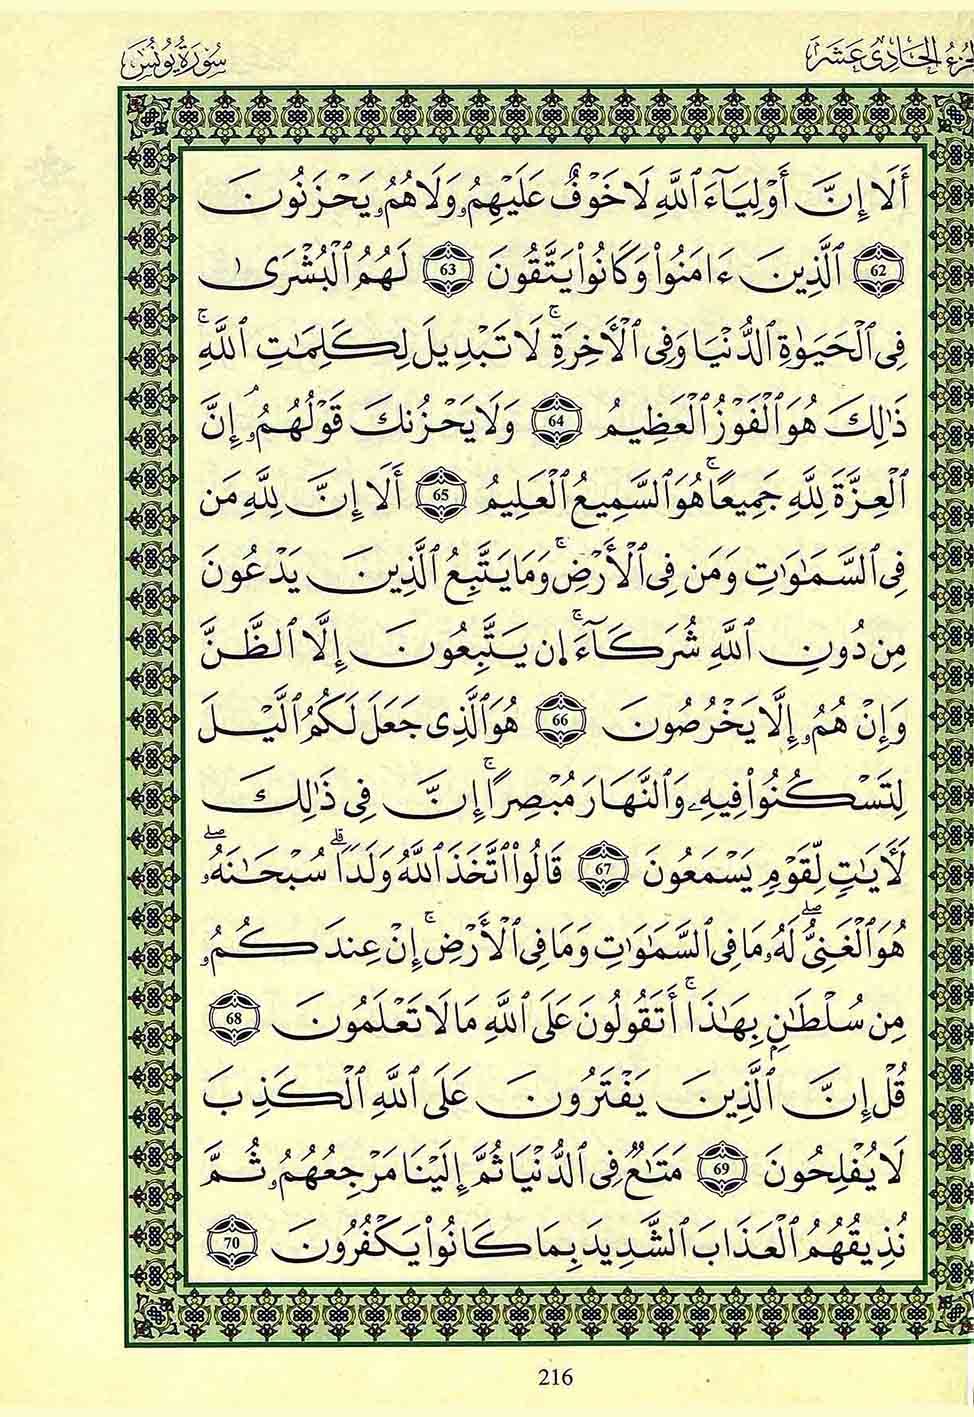 الجزء الحادى عشر
سورة يونس
أَلَا إِنَّ أَوْلِيَآءَ ٱللَّهِ لَا خَوْفٌ عَلَيْهِمُۥ وَلَا هُمُۥ يَحْزَنُونَ
62 ٱلَّذِينَ ءَامَنُوا۟ وَكَانُوا۟ يَتَّقُونَ 63 لَهُمُ ٱلْبُشْرَىٰ
فِى ٱلْحَيَوٰةِ ٱلدُّنْيَا وَفِى ٱلْأَخِرَةِۚ لَا تَبْدِيلَ لِكَلِمَٰتِ ٱللَّهِۚ
ذَٰلِكَ هُوَ ٱلْفَوْزُ ٱلْعَظِيمُ 64 وَلَا يَحْزُنكَ قَوْلُهُمُۥۘ إِنَّ
ٱلْعِزَّةَ لِلَّهِ جَمِيعًاۚ هُوَ ٱلسَّمِيعُ ٱلْعَلِيمُ 65 أَلَا إِنَّ لِلَّهِ مَن
فِى ٱلسَّمَٰوَٰتِ وَمَن فِى ٱلْأَرْضِۚ وَمَا يَتَّبِعُ ٱلَّذِينَ يَدْعُونَ
مِن دُونِ ٱللَّهِ شُرَكَآءَۚ إِن يَتَّبِعُونَ إِلَّا ٱلظَّنَّ
وَإِنْ هُمُۥ إِلَّا يَخْرُصُونَ 66 هُوَ ٱلَّذِى جَعَلَ لَكُمُ ٱلَّيْلَ
لِتَسْكُنُوا۟ فِيهِۦ وَٱلنَّهَارَ مُبْصِرًاۚ إِنَّ فِى ذَٰلِكَ
لَأَيَٰتٍ لِّقَوْمٍ يَسْمَعُونَ 67 قَالُوا۟ ٱتَّخَذَ ٱللَّهُ وَلَدًاۗ سُبْحَٰنَهُۥۖ
هُوَ ٱلْغَنِىُّۖ لَهُۥ مَا فِى ٱلسَّمَٰوَٰتِ وَمَا فِى ٱلْأَرْضِۚ إِنْ عِندَكُمُۥ
مِن سُلْطَٰنٍۭ بِهَٰذَاۚ أَتَقُولُونَ عَلَى ٱللَّهِ مَا لَا تَعْلَمُونَ 68
قُلْ إِنَّ ٱلَّذِينَ يَفْتَرُونَ عَلَى ٱللَّهِ ٱلْكَذِبَ
لَا يُفْلِحُونَ 69 مَتَٰعٌ فِى ٱلدُّنْيَا ثُمَّ إِلَيْنَا مَرْجِعُهُمُۥ ثُمَّ
نُذِيقُهُمُ ٱلْعَذَابَ ٱلشَّدِيدَ بِمَا كَانُوا۟ يَكْفُرُونَ 70
216